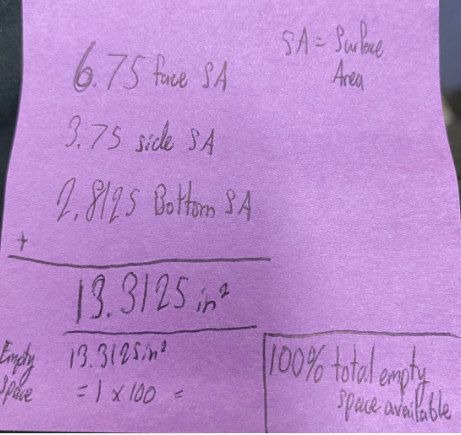 SA = Surface
Area
6.75 face SA
3.75 side SA
2.8125 Bottom SA
+
13.3125 in²
Empty
Space
13.3125 in²
= 1 x 100 =
100% total empty
space available